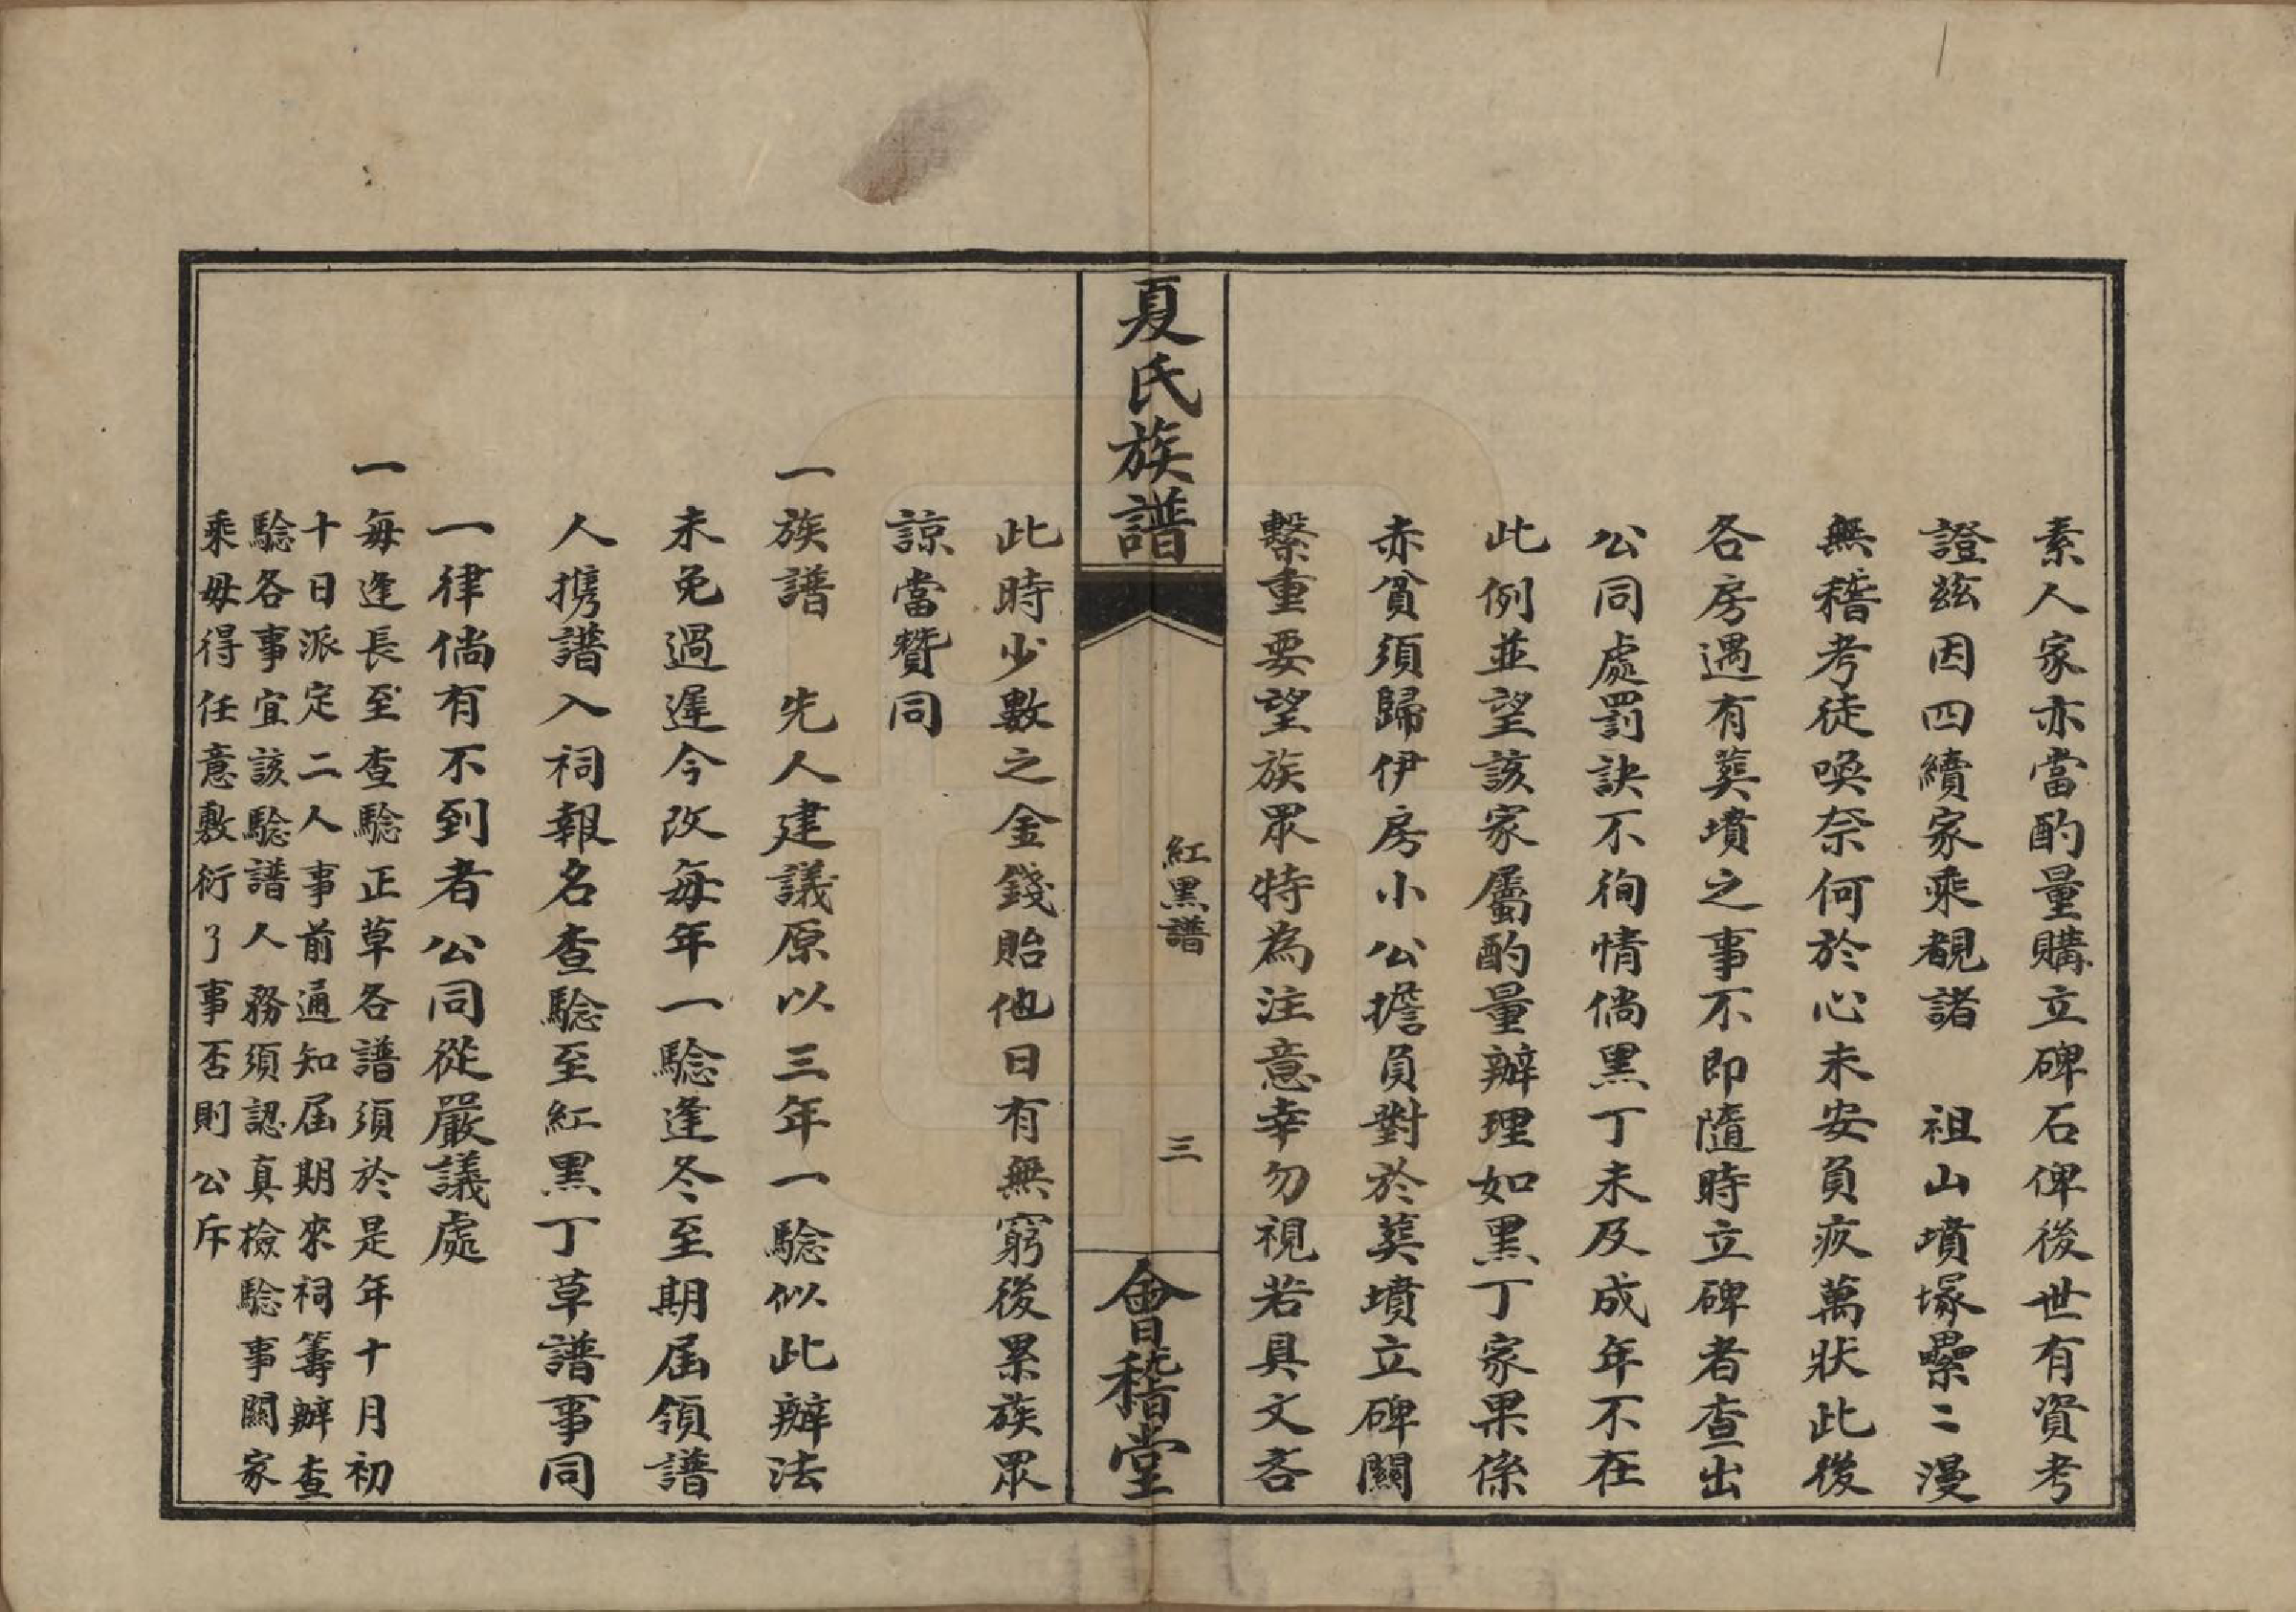 素人家亦當酌量購立碑石俾後世有資考
證茲因四續家乘覩諸　祖山墳塚纍〻漫
無稽考徒喚奈何於心未安負疚萬狀此後
各房遇有葬墳之事不即隨時立碑者查出
公同處罰訣不徇情倘黑丁未及成年不在
此例並望該家屬酌量辦理如黑丁家果係
赤貧須歸伊房小公擔負對於葬墳立碑關
繫重要望族眾特為注意幸勿視若具文吝
夏氏族譜
紅黑譜
三
會稽堂
此時少數之金錢貽他日有無窮後累族眾
諒當贊同
一族譜　先人建議原以三年一驗似此辦法
未免過遲今改每年一驗逢冬至期届領譜
人携譜入祠報名查驗至紅黑丁草譜事同
一律倘有不到者公同從嚴議處
一每逢長至查驗正草各譜須於是年十月初
十日派定二人事前通知届期來祠籌辦查
驗各事宜該驗譜人務須認真檢驗事關家
乘毋得任意敷衍了事否則公斥